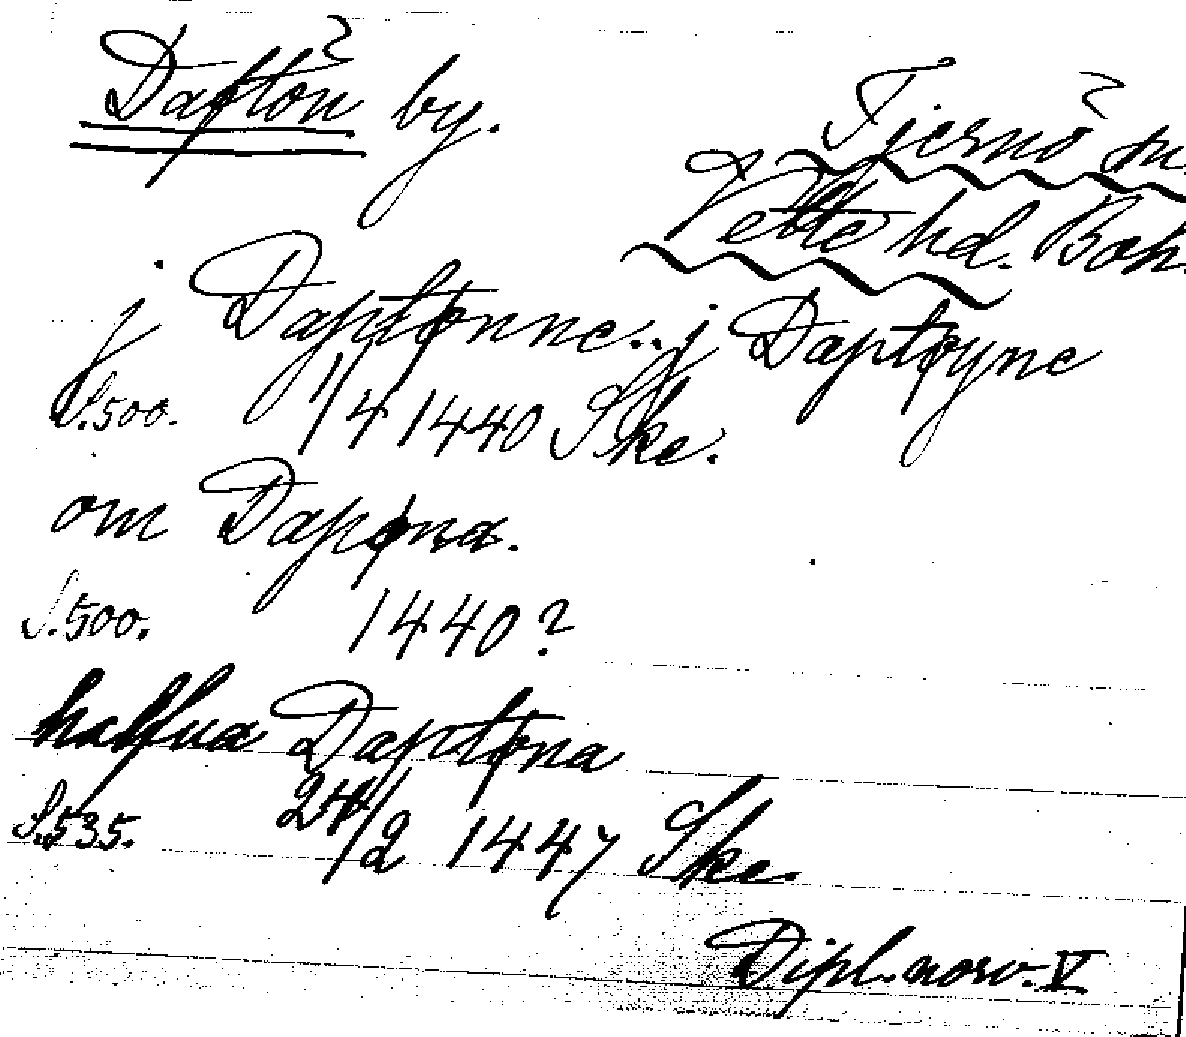 Daftön by.
Tjernö sn.
Vette hd. Boh.
j Daptønne.. j Daptøyne
S.500. 1/4 1440 Ske.
om Dapøna.
S.500. 1440?
halfua Daptøna
S.535. 24/2 1447 Ske.
Dipl. norv. V